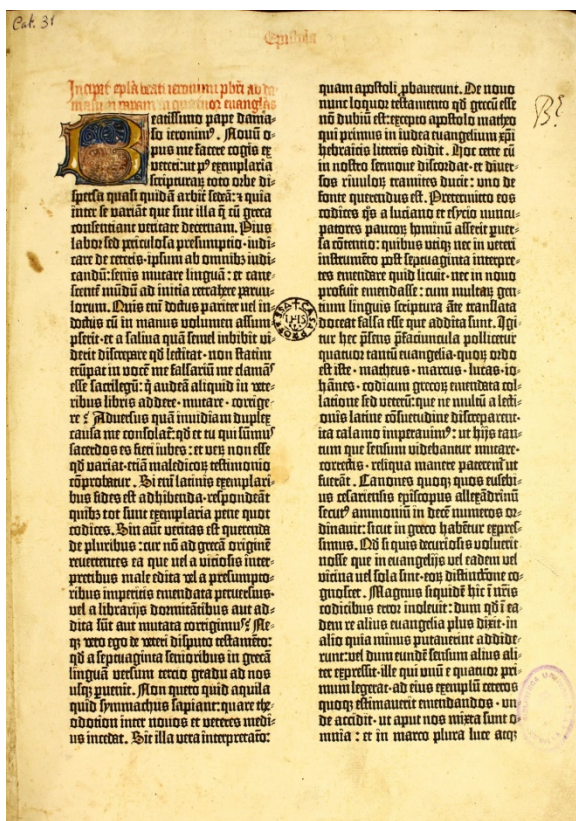 Cat. 31
Epistola
Incipit epl̄a beati ieronimi pb̄ri ad da-
masum papam in quatuor euangl̄ia
Beatissimo pape dama-
so ieronimꝰ. Nouū o-
pus me facere cogis ex
veteri: ut pꝰ exemplaria
scripturaꝝ toto orbe di-
spersa quasi quidā arbiter sedeā: ⁊ quia
inter se variāt que sint illa q̄ cū greca
consentiant veritate decernam. Pius
labor sed periculosa presumptio: iudi-
care de ceteris·ipsum ab omnibꝫ iudi-
candū: senis mutare linguā: et cane-
scentē mūdū ad initia retrahere paruu-
lorum. Quis eni doctus pariter uel in-
doctus cū in manus volumen assum-
pserit·et a saliua quā semel inbibit vi-
derit discrepare qd̄ lectitat·non statim
erūpat in vocē me falsariū me clamās
esse sacrilegū: q̄ audeā aliquid in vete-
ribus libris addere·mutare·corrige-
re? Aduersus quā inuidiam duplex
causa me consolat᷑: qd̄ et tu qui sūmus
sacerdos es fieri iubes: et verū non esse
qd̄ variat·etiā maledicoꝝ testimonio
cōprobatur. Si eni latinis exemplari-
bus fides est adhibenda·respondeāt
quibꝫ: tot sunt exemplaria pene quot
codices. Sin aūt veritas est querenda
de pluribus: cur nō ad grecā originē
reuertentes ea que uel a viciosis inter-
pretibus male edita vel a presumpto-
ribus imperitis emendata peruersius·
vel a librarijs dormitātibus aut ad-
dita sūt aut mutata corrigimꝰ? Ne-
qꝫ vero ego de veteri disputo testamēto:
qd̄ a septuaginta senioribus in grecā
linguā versum tercio gradu ad nos
usqꝫ puenit. Non quero quid aquila
quid symmachus sapiant: quare the-
odotion inter nouos et veteres medi-
us incedat. Sit illa vera interpretatō:
quam apostoli ꝓbauerunt. De nouo
nunc loquor testamento qd̄ grecū esse
nō dubiū est: excepto apostolo matheo
qui primus in iudea euangelium xp̄i
hebraicis litteris edidit. Hoc certe cū
in nostro sermone discordat·et diuer-
sos riuuloꝝ tramites ducit: uno de
fonte querendus est. Pretermitto eos
codices q̄s a luciano et esycio nuncu-
patores paucoꝝ hominū asserit puer-
sa cōtentio: quibus utiqꝫ nec in veteri
instrumēto post septuaginta interpre-
tes emendare quid licuit·nec in nouo
profuit emendasse: cum multaꝝ gen-
tium linguis scriptura āte translata
doceat falsa esse que addita sunt. Igi-
tur hec p̄sens p̄faciuncula pollicetur
quatuor tantū euangelia·quoꝝ ordo
est iste·matheus·marcus·lucas·io-
hānes·codicum grecoꝝ emendata col-
latione sed veterū: que ne multū a lecti-
onis latine cōsuetudine discreparent·
ita calamo imperauimꝰ: ut hijs tan-
tum que sensum videbantur mutare·
correctis·reliqua manere pateremur ut
fuerāt. Canones quoqꝫ quos eusebi-
us cesariensis episcopus allexādrinū
secutꝰ ammoniū in decē numeros or-
dinauit: sicut in greco habētur expres-
simus. Qd̄ si quis decuriosis voluerit
nosse que in euangelijs vel eadem vel
vicina uel sola sint·eoꝝ distinctione co-
gnoscet. Magnus siquidē hic ī nr̄is
codicibus error inoleuit: dum qd̄ ī ea-
dem re alius euangelista plus dixit·in
alio quia minus putauerint addide-
runt: vel dum eundē sensum alius ali-
ter expressit·ille qui unū e quatuor pri-
mum legerat·ad eius exemplū ceteros
quoqꝫ estimauerit emendandos·un-
de accidit·ut aput nos mixta sunt o-
mnia: et in marco plura luce atqꝫ